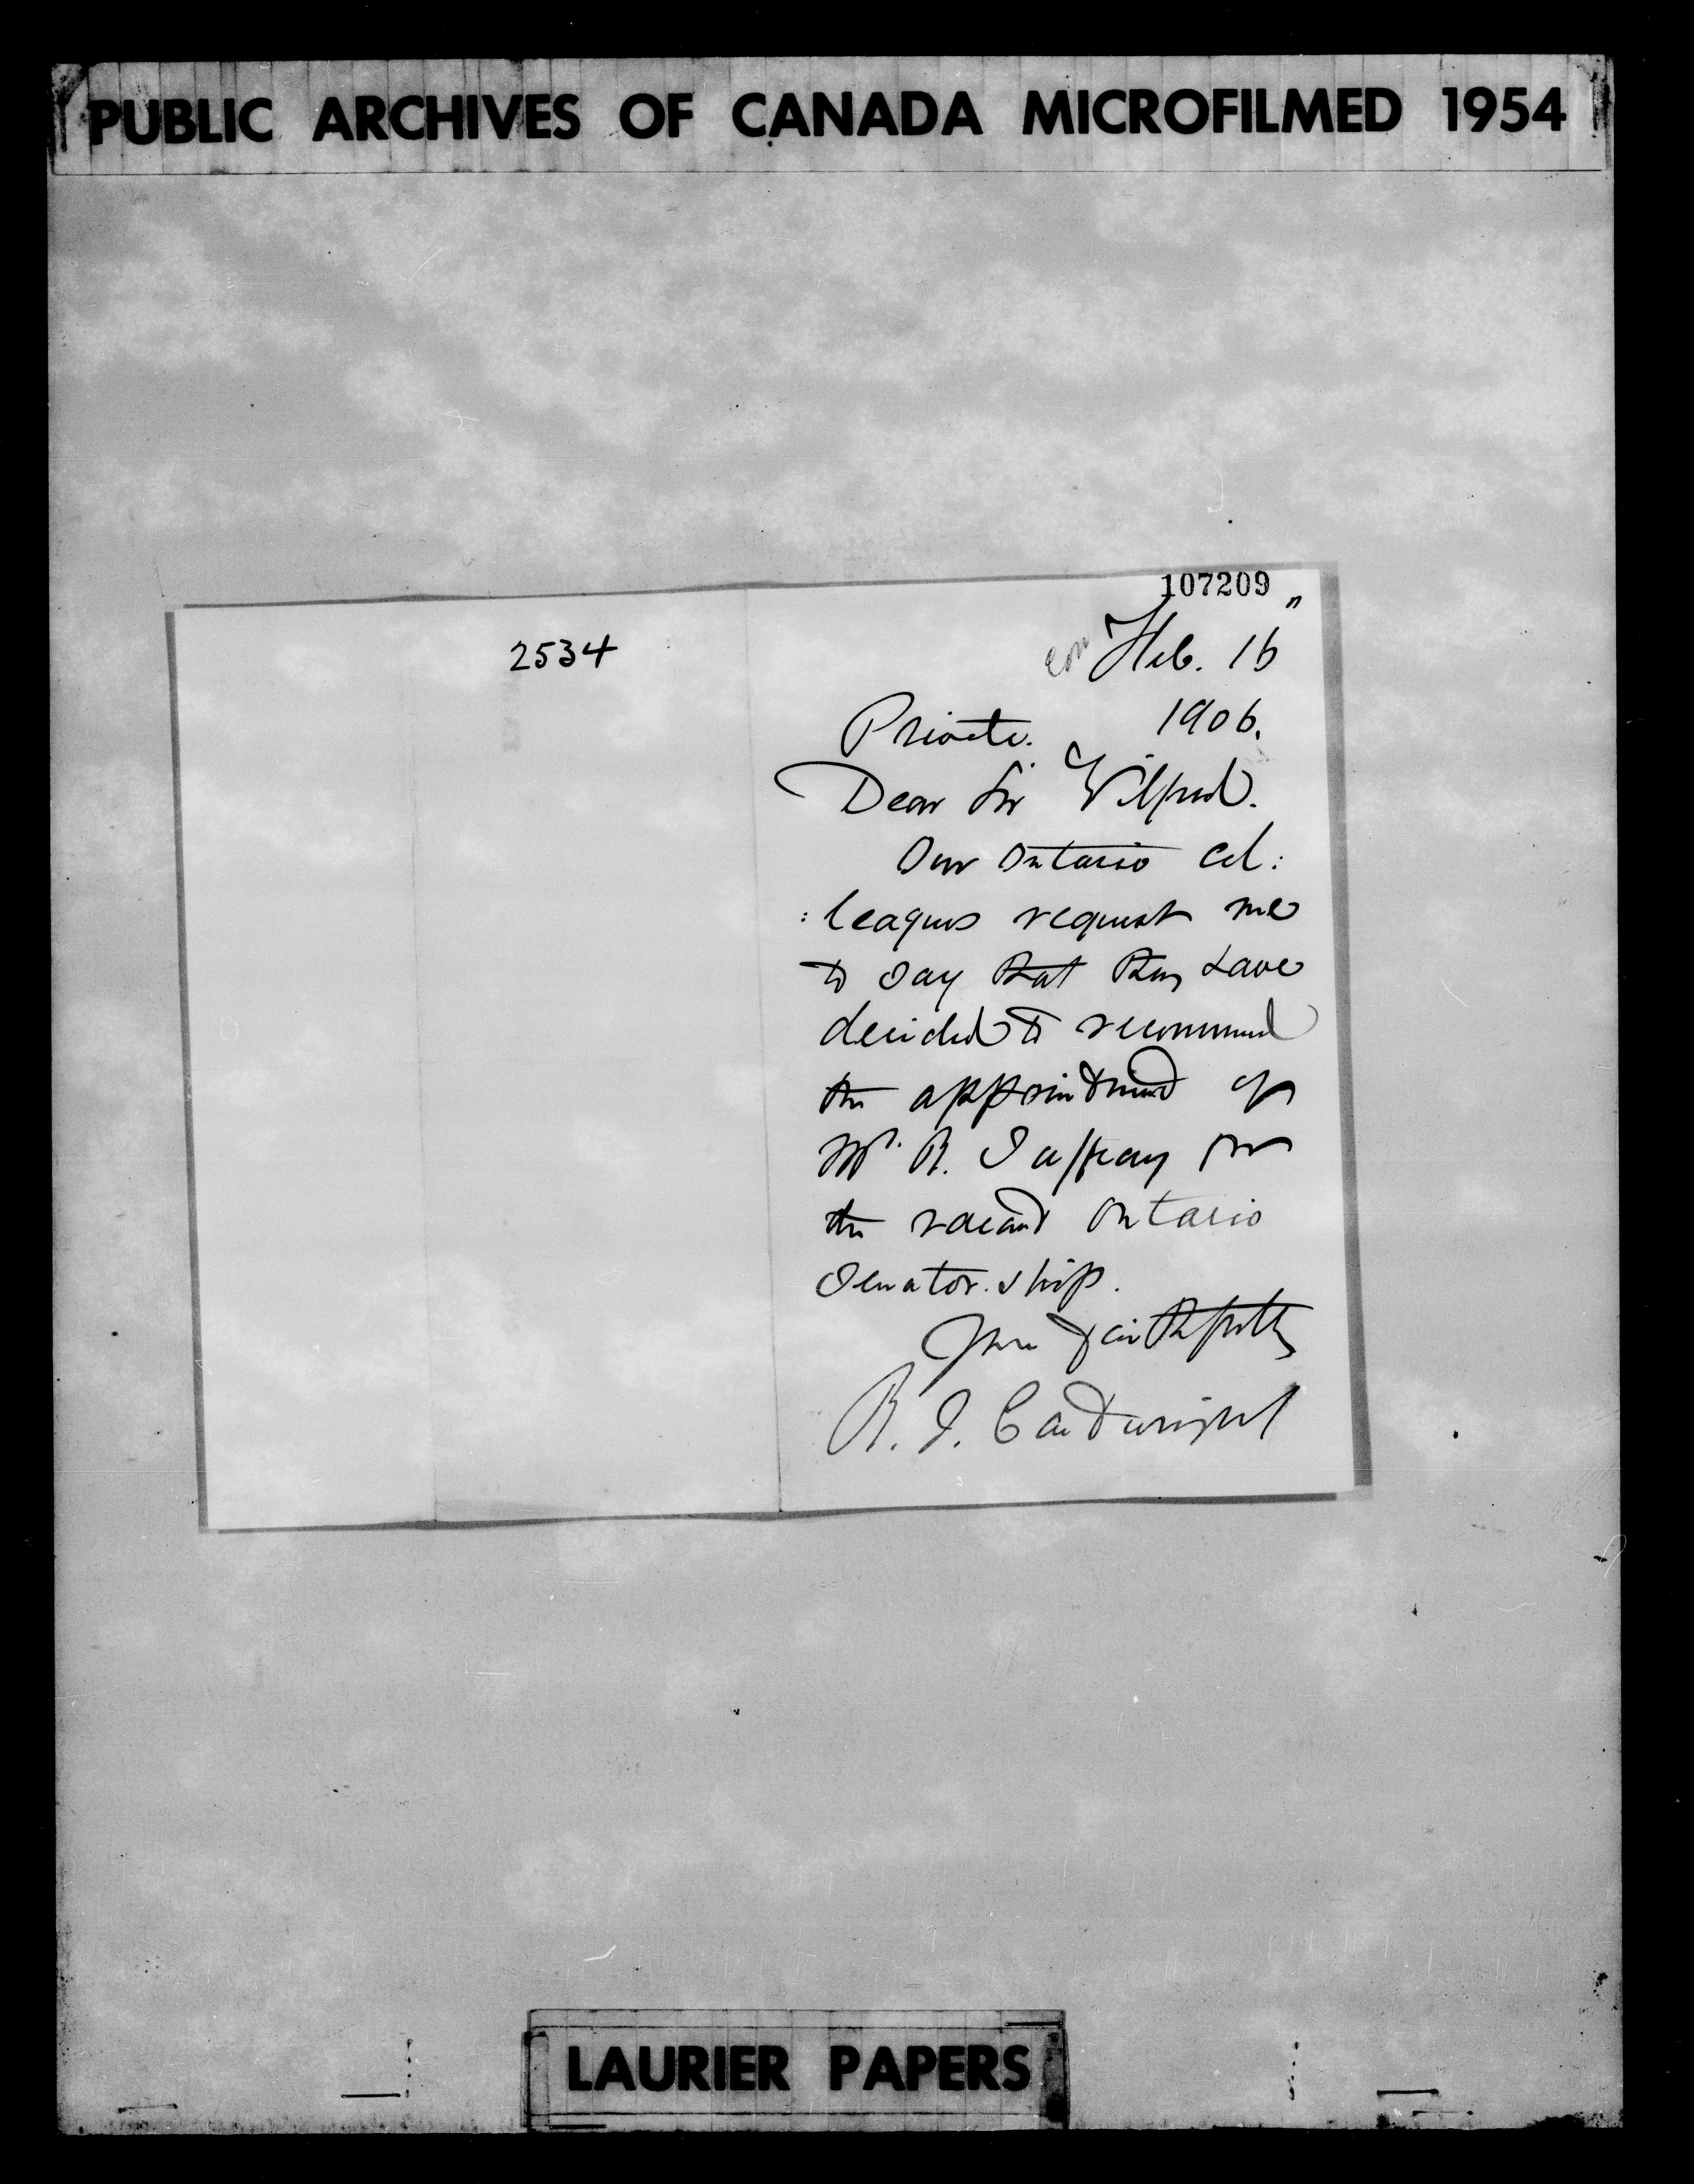 PUBLIC ARCHIVES OF CANADA MICROFILMED 1954
107209
2534
Feb. 16
1906.
Private.
Dear Sir Wilfred.
Our Ontario Col:
:leagues request me
to say that they have
decided to recommend
the appointment of
Mr. R. Jaffray for
the vacant Ontario
Senator.ship.
Yours faithfully
R. J. Cartwright
LAURIER PAPERS